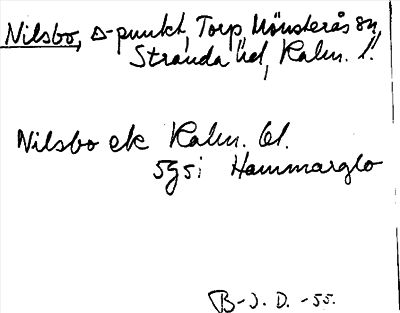 Nilsbo, Δ-punkt, Torp, Mönsterås sn,
Stranda hd, Kalm. l.
Nilsbo ek Kalm. bl.
5g5i Hammarglo
B-J. D. -55.